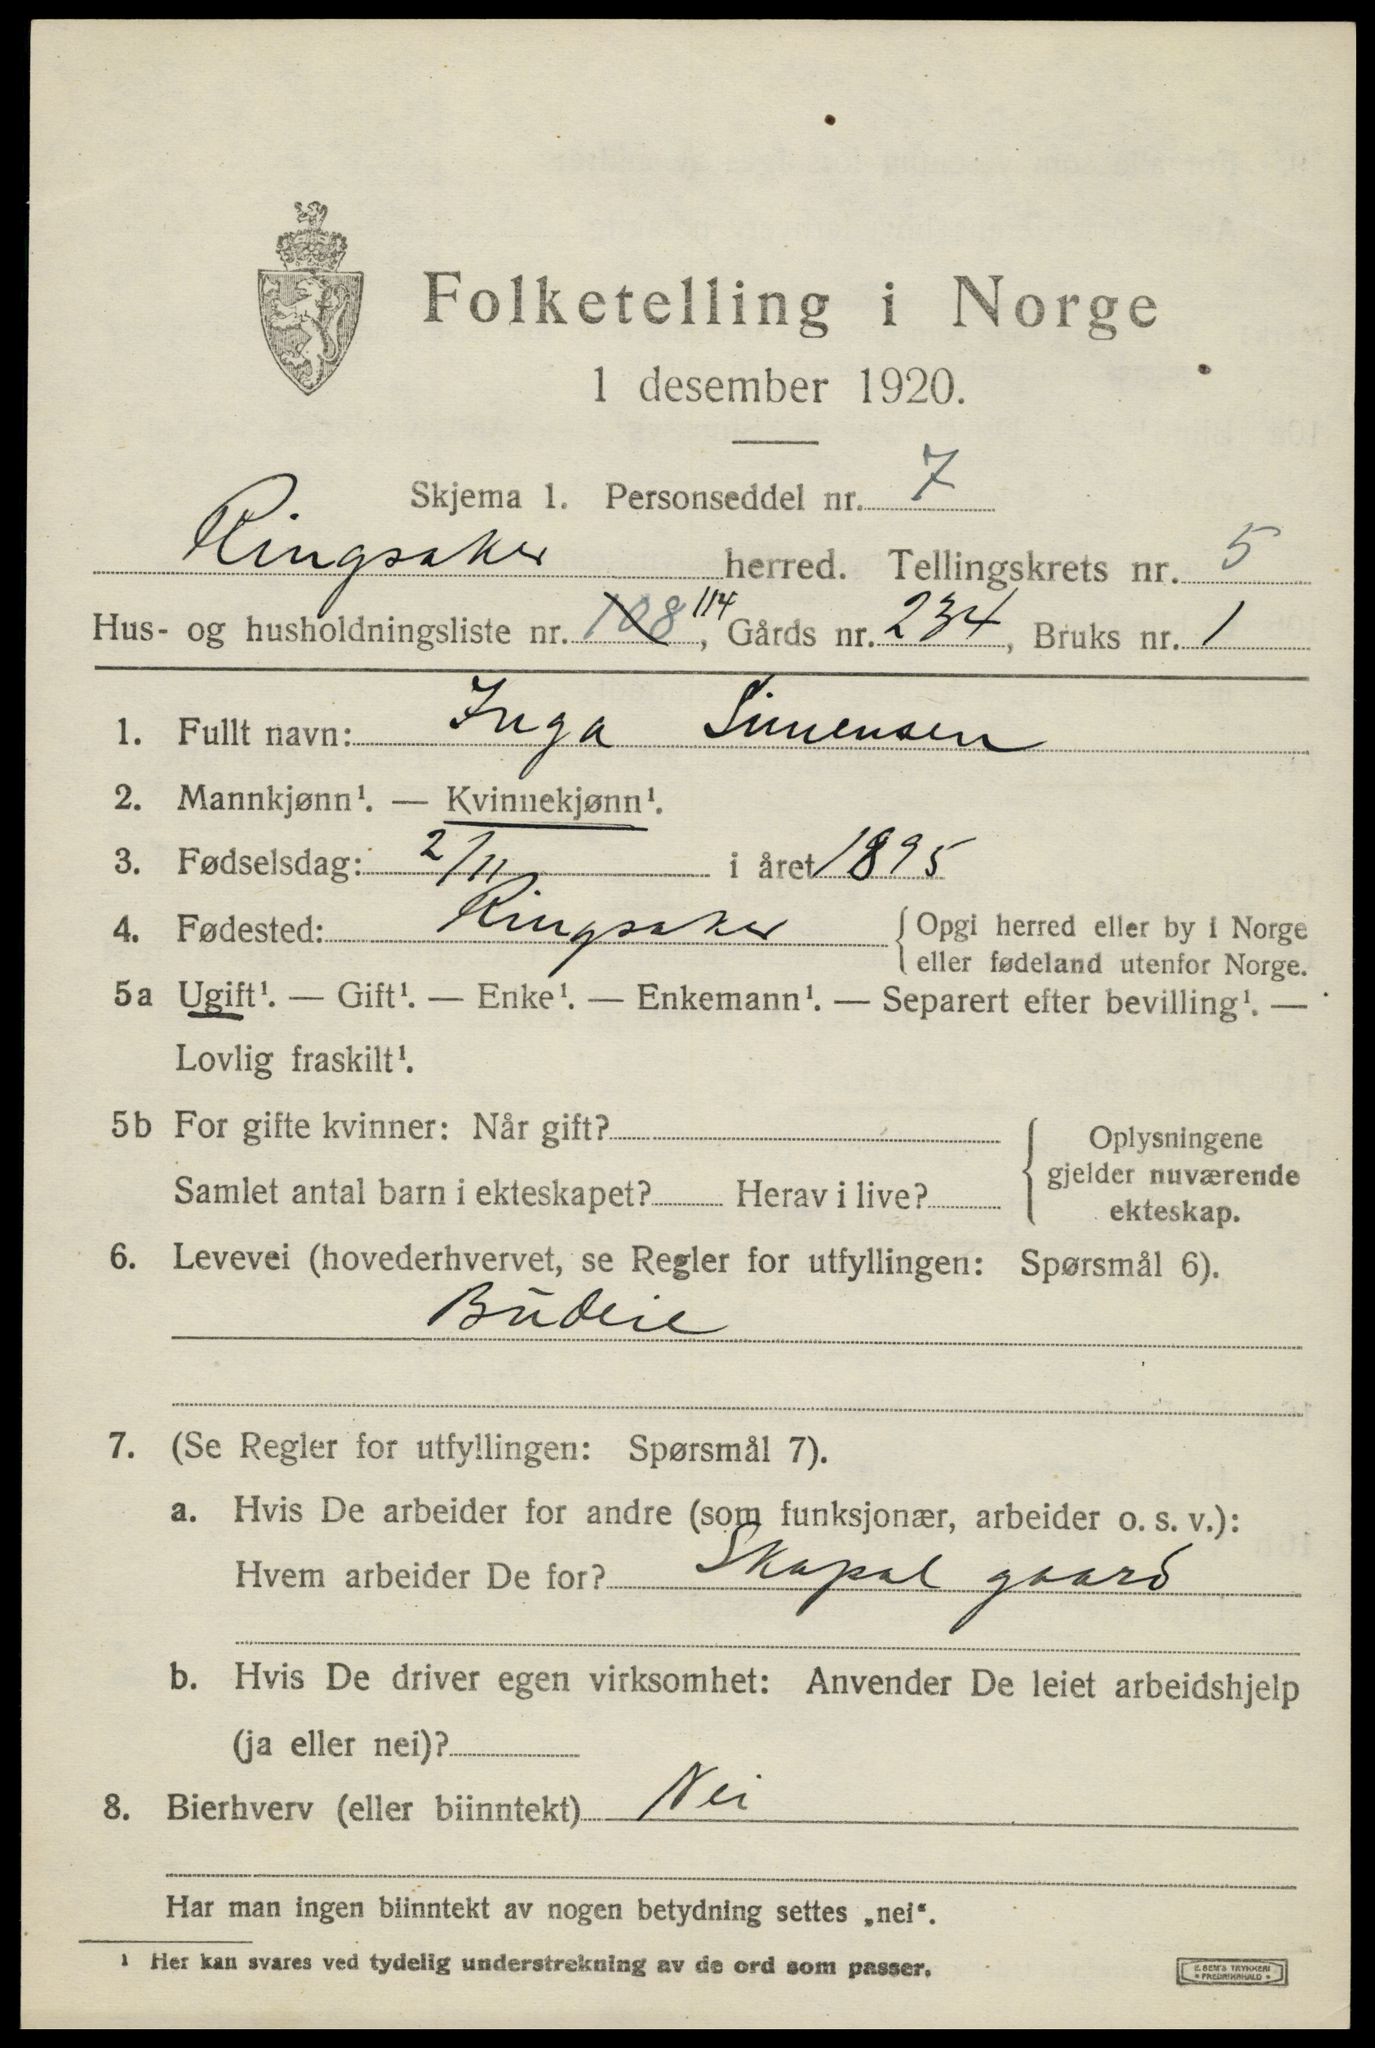 Folketelling i Norge
1 desember 1920.
Skjema 1. Personseddel nr. 7
Ringsaker herred. Tellingskrets nr. 5
Hus- og husholdningsliste nr. 108 114, Gårds nr. 234, Bruks nr. 1
1. Fullt navn: Inga Simensen
2. Mannkjønn¹. — Kvinnekjønn¹.
3. Fødselsdag: 2/11 i året 1895
4. Fødested: Ringsaker { Opgi herred eller by i Norge
eller fødeland utenfor Norge.
5a Ugift¹. — Gift¹. — Enke¹. — Enkemann¹. — Separert efter bevilling¹. —
Lovlig fraskilt¹.
5b For gifte kvinner: Når gift?
Samlet antal barn i ekteskapet? Herav i live?
{ Oplysningene
gjelder nuværende
ekteskap.
6. Levevei (hovederhvervet, se Regler for utfyllingen: Spørsmål 6).
Budeie
7. (Se Regler for utfyllingen: Spørsmål 7).
a. Hvis De arbeider for andre (som funksjonær, arbeider o. s. v.):
Hvem arbeider De for? Skapal gaard
b. Hvis De driver egen virksomhet: Anvender De leiet arbeidshjelp
(ja eller nei)?
8. Bierhverv (eller biinntekt) Nei
Har man ingen biinntekt av nogen betydning settes „nei“.
¹ Her kan svares ved tydelig understrekning av de ord som passer.
E. SEM'S TRYKKERI
FREDRIKSHALD